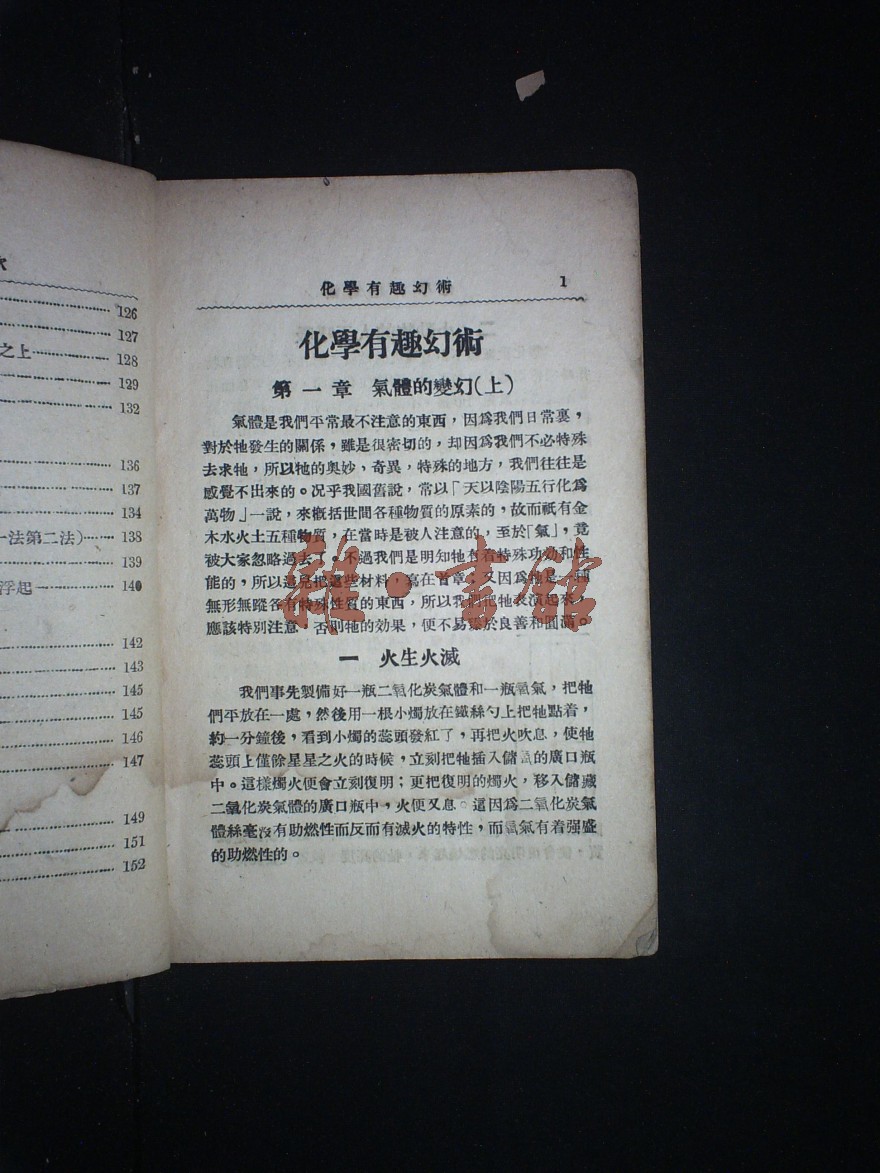 次
126
127
之上 128
129
132
136
137
134
一法第二法) 138
139
浮起 140
142
143
145
145
146
147
149
151
152
化學有趣幻術 1
化學有趣幻術
第一章 氣體的變幻(上)
氣體是我們平常最不注意的東西,因爲我們日常裏,
對於牠發生的關係,雖是很密切的,却因爲我們不必特殊
去求牠,所以牠的奥妙、奇異,特殊的地方,我們往往是
感覺不出來的。况乎我國舊說,常以「天以陰陽五行化爲
萬物」一說,來概括世間各種物質的原素的,故而祇有金
木水火土五種物質,在當時是被人注意的,至於「氣」,竟
被大家忽略過去了。不過我們是明知牠有着特殊功効和性
能的,所以這兒把這些材料,寫在首章;又因爲牠是一種
無形無蹤各有特殊性質的東西,所以我們把牠表演起來,
應該特別注意,否則牠的效果,便不易臻於良善和圓滿。
一 火生火滅
我們事先製備好一瓶二氧化炭氣體和一瓶氧氣,把牠
們平放在一處,然後用一根小燭放在鐵絲勺上把牠點着,
約一分鐘後,看到小燭的蕊頭發紅了,再把火吹息,使牠
蕊頭上僅餘星星之火的時候,立刻把牠插入儲氧的廣口瓶
中。這樣燭火便會立刻復明;更把復明的燭火,移入儲藏
二氧化炭氣體的廣口瓶中,火便又息。這因爲二氧化炭氣
體絲毫沒有助燃性而反而有滅火的特性,而氧氣有着强盛
的助燃性的。
雜·書館